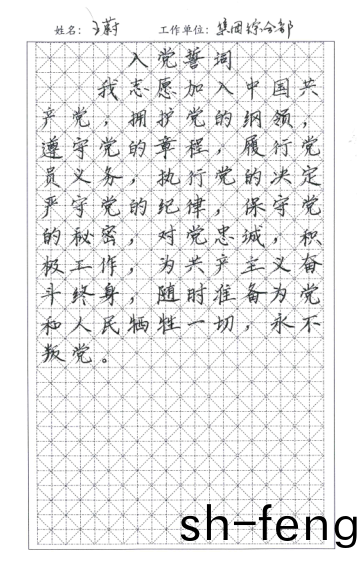 姓名：王蔚 工作单位：集团综合部
入党誓词
我志愿加入中国共
产党，拥护党的纲领，
遵守党的章程，履行党
员义务，执行党的决定
严守党的纪律，保守党
的秘密，对党忠诚，积
极工作，为共产主义奋
斗终身，随时准备为党
和人民牺牲一切，永不
叛党。
sh-feng